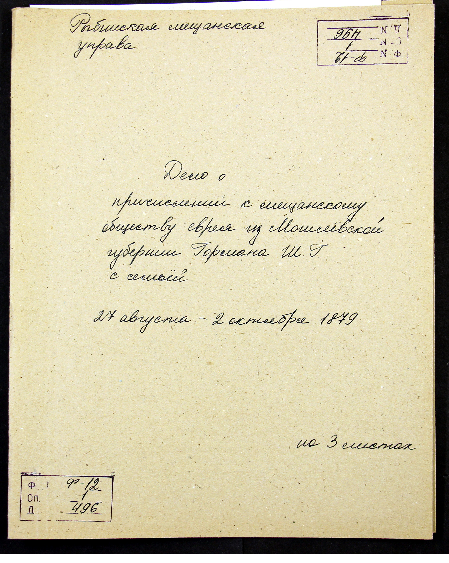 Рыбинская мещанская
управа
Дело о
причислении к мещанскому
обществу еврея из Могилевской
губернии Гормана Ш. Г
с семьёй
27 августа - 2 октября 1879
на 3 листах
Ф. Ф-12
Оп. 1
Д 496